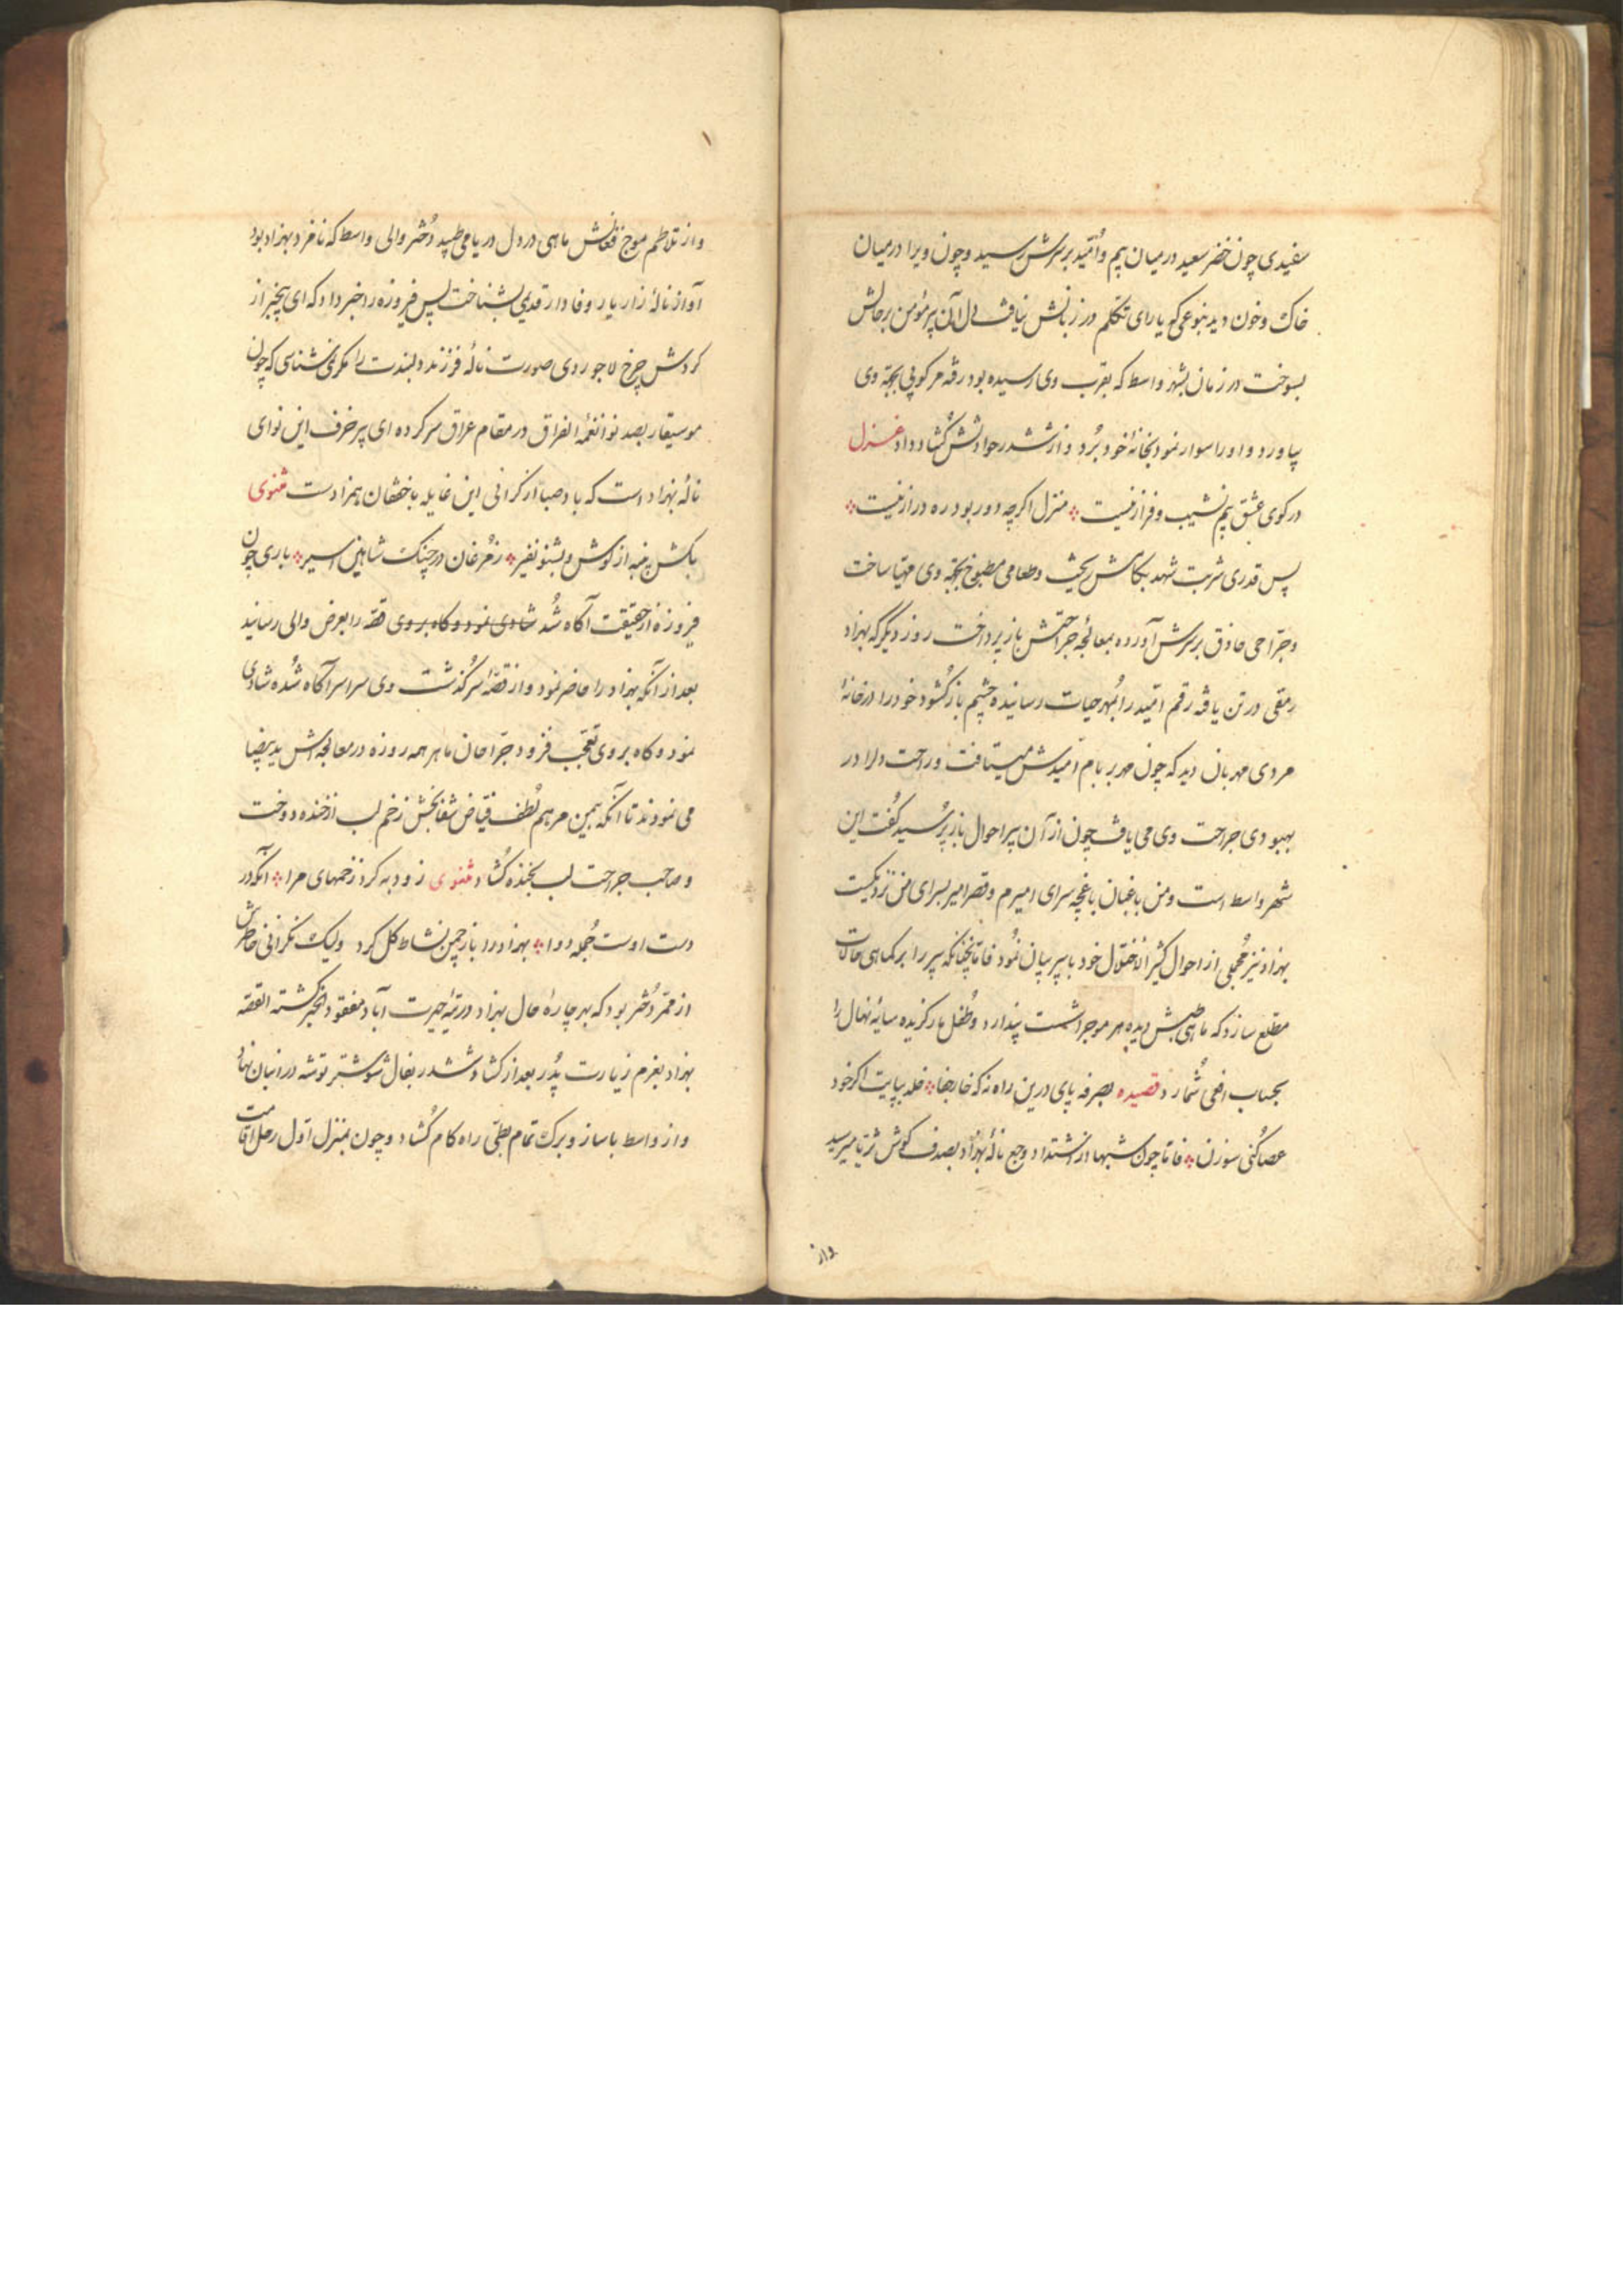 سفیدی چون خضر سعید در میان بیم و اُمّید بر سرش رسید و چون ویرا در میان
خاک و خون دید بنوعی که یارای تکلم در زبانش نیافت دل آن پیر مؤمن بر حالش
بسوخت در زمان بشهر واسط که بقرب وی رسیده بود رفته مرکوبی بجهة وی
بیاورد و او را سوار نمود بخانهٔ خود بُرد و از ششدر حوادثش گُشاد داد غزل
در کوی عشق بیم نشیب و فراز نیست ؞ منزل اگرچه دور بود ره دراز نیست ؞
پس قدری شربت شهد بکامش ریخت و طعامی مطبوخ بجهة وی مهیّا ساخت
و جرّاحی حاذق بر سرش آورده بمعالجه جراحتش باز پرداخت روز دیگر که بهزاد
رمقی در تن یافته رقم امّید را بُمهر حیات رسانیده چشم باز گشود خود را در خانهٔ
مردی مهربان دید که چون مهر بر بام امّیدش میتافت و راحت دل را در
بهبودی جراحت وی می یافت چون از آن پیر احوال باز پُرسید گفت این
شهر واسط است و من باغبان باغچه سرای امیرم و قصر امیر بسرای من نزدیکست
بهزاد نیز مُجملی از احوال کثیر الاختلال خود با پیر بیان نمُود فامّا نچنانکه پیر را بر کماهی حالات
مطلع سازد که ماهی طپش دیده هر موج را شست پندارد و طفل مار گزیده سایهٔ نهال را
بجناب افعی شُمارد قصیده بصرفه پای درین راه نه که خار جفا ؞ خلد بپایت اگر خود
عصا کُنی سوزن ؞ فامّا چون شبها از اشتداد وجع نالهٔ بهزاد بصدف گوش ثریّا میرسید
واز
و از تلاطم موج فغانش ماهی در دل دریا می طپید دُختر والی واسط که نامزد بهزاد بود
آواز نالهٔ زار یار وفادار قدیمی بشناخت پس فیروزه را خبر داد که ای بیخبر از
گردش چرخ لاجوردی صورت نالهٔ فرزند دلبندت را مگر نمی شناسی که چون
موسیقار بصد نوا نغمهٔ الفراق در مقام عراق سر کرده ای پیر خرف این نوای
نالهٔ بهزاد است که باد صبا از گرانی این غایله با خفقان همزادست مثنوی
بکش پنبه از گوش و بشنو نفیر ؞ ز مُرغان در چنگ شاهین اسیر ؞ باری چون
فیروزه از حقیقت آگاه شُد شادی نمود و گاه بر وی قصّه را بعرض والی رسانید
بعد از آنکه بهزاد را حاضر نمود و از قصّهٔ سرگذشت وی سراسر آگاه شُده شادی
نمود و گاه بر وی تعجّب فزود جرّاحان ماهر همه روزه در معالجه اش ید بیضا
می نمودند تا آنکه بهمین مرهم لُطف فیّاض شفا بخش زخم لب از خنده دوخت
و صاحب جراحت لب بخنده گُشاد مثنوی زود به کرد زخمهای مرا ؞ آنکه در
دست اوست جُمله دوا ؞ بهزاد را باز چمن نشاط گل کرد ولیک نگرانی خاطرش
از ممّر دُختر بود که بهر چارهٔ حال بهزاد در تیه حیرت آباد مفقود الخبر گشته القصّه
بهزاد بعزم زیارت پدُر بعد از گشاد ششدر بفال شوشتر توشه در انبان نهاد
و از واسط با ساز و برگ تمام بطیّ راه گام گُشاد و چون بمنزل اوّل رحل اقامت